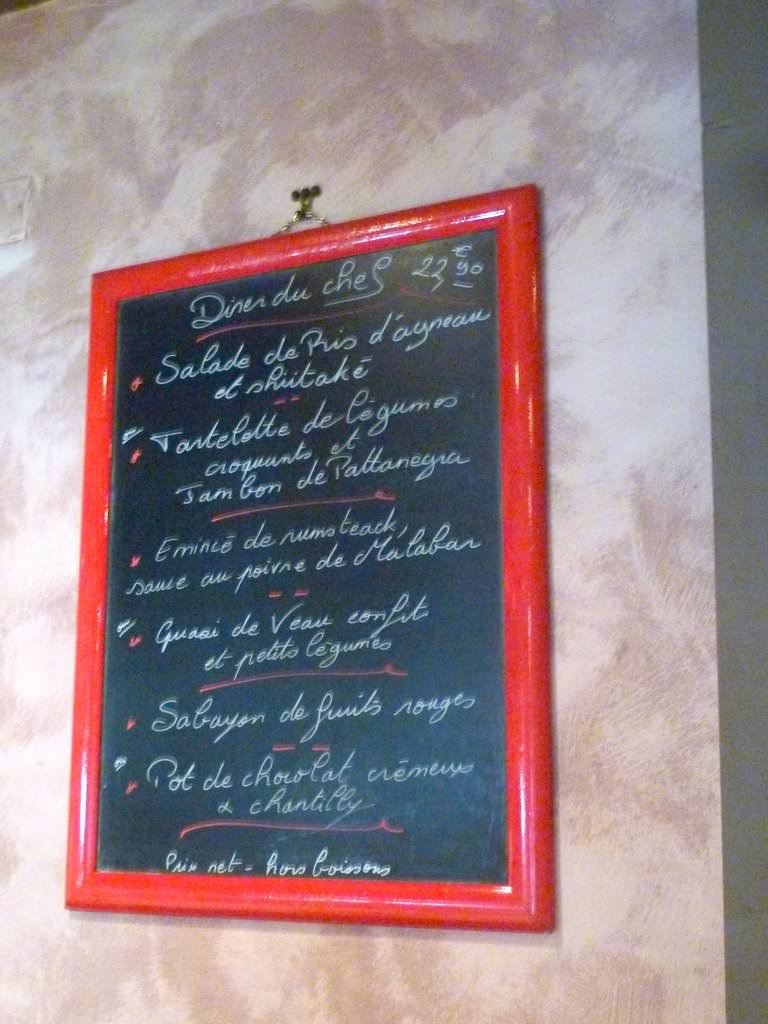 Diner du chef 22,€90
* Salade de Ris d'agneau
et shiitaké
* Tartelette de légumes
croquants et
Jambon de Pattanegra
* Emincé de rumsteack,
sauce au poivre de Malabar
* Quasi de Veau confit
et petits légumes
* Sabayon de fruits rouges
* Pot de chocolat crémeux
& chantilly
Prix net - hors boissons